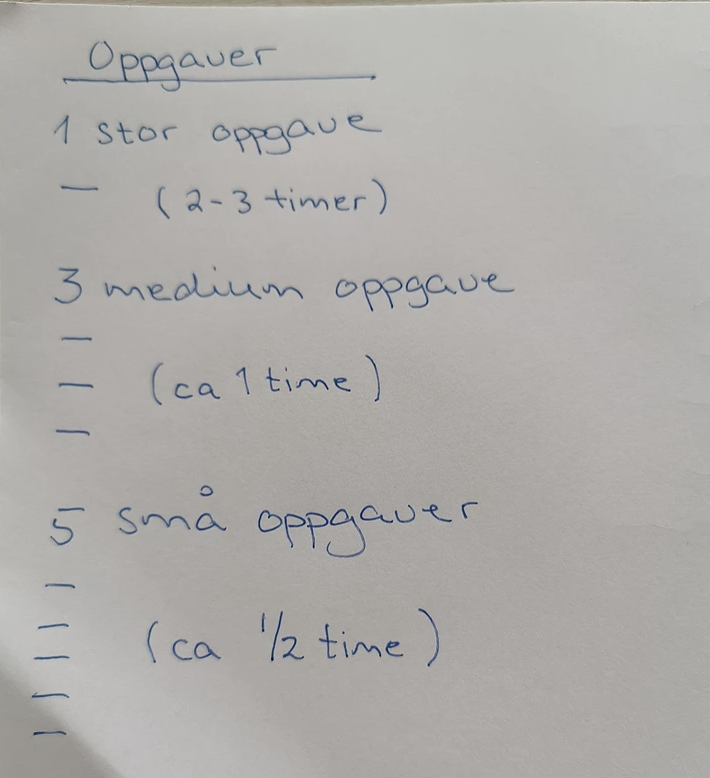 Oppgaver
1 stor oppgave
- (2-3 timer)
3 medium oppgave
-
- (ca 1 time)
-
5 små oppgaver
-
-
- (ca 1/2 time)
-
-